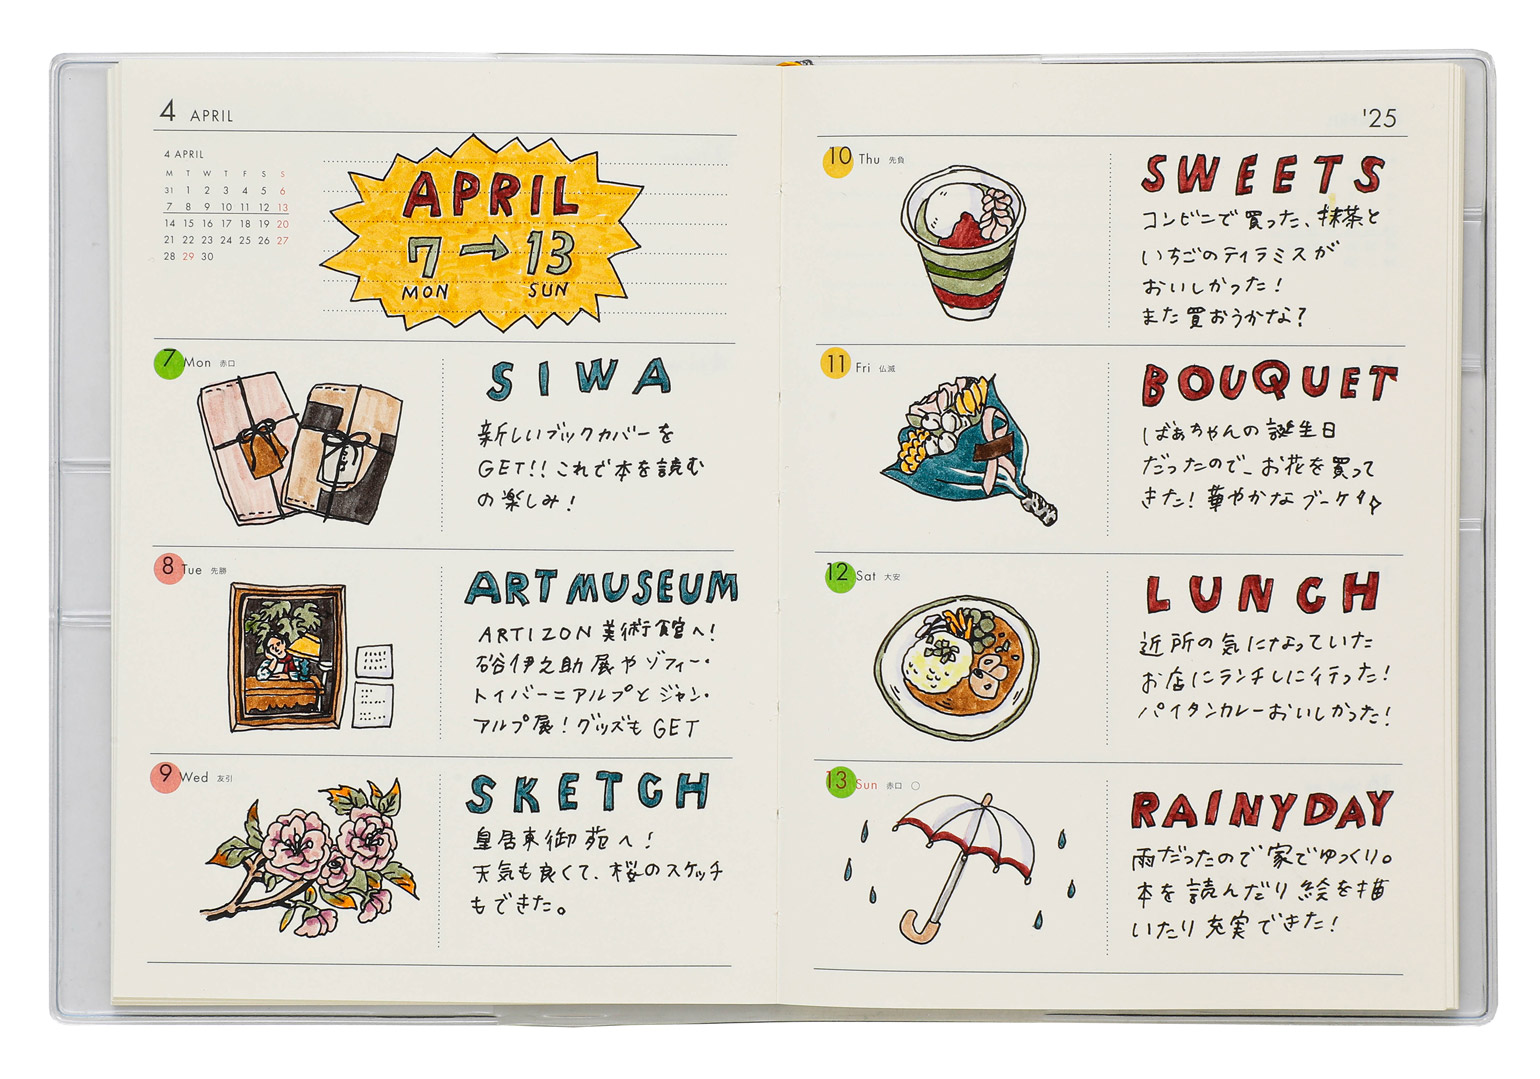 4 APRIL
4 APRIL
M T W T F S S
31 1 2 3 4 5 6
7 8 9 10 11 12 13
14 15 16 17 18 19 20
21 22 23 24 25 26 27
28 29 30
APRIL
7 → 13
MON SUN
7 Mon 赤口
SIWA
新しいブックカバーを
GET!! これで本を読む
の楽しみ!
8 Tue 先勝
ART MUSEUM
ARTIZON 美術館へ!
硲伊之助展やゾフィー・
トイバー=アルプとジャン・
アルプ展!グッズも GET
9 Wed 友引
SKETCH
皇居東御苑へ!
天気も良くて、桜のスケッチ
もできた。
'25
10 Thu 先負
SWEETS
コンビニで買った、抹茶と
いちごのティラミスが
おいしかった!
また買おうかな?
11 Fri 仏滅
BOUQUET
ばあちゃんの誕生日
だったので、お花を買って
きた!華やかなブーケ
12 Sat 大安
LUNCH
近所の気になっていた
お店にランチしに行った!
パイタンカレーおいしかった!
13 Sun 赤口 ○
RAINYDAY
雨だったので家でゆっくり。
本を読んだり絵を描
いたり充実できた!